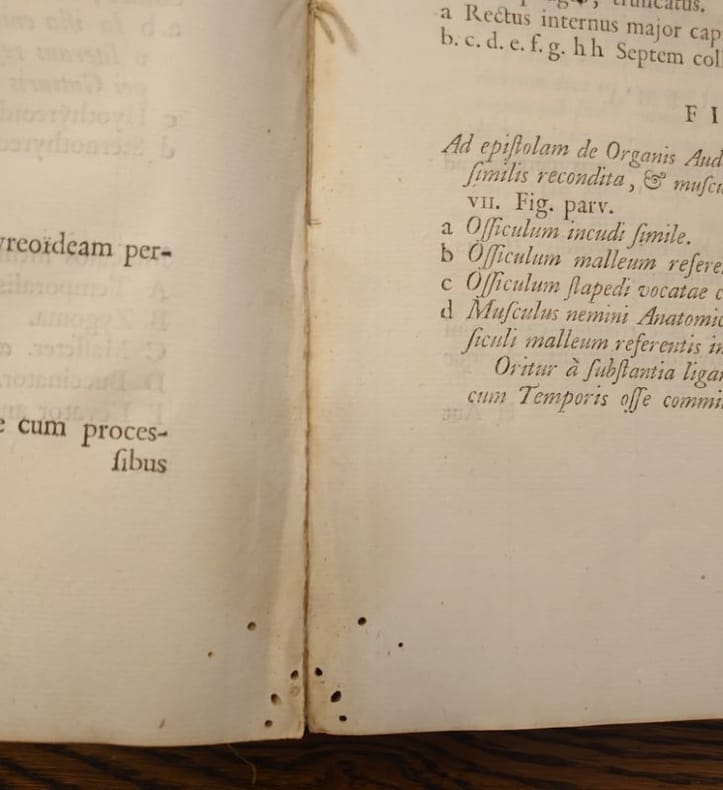 yreoïdeam per-
cum proces-
ſibus
truncatus.
a Rectus internus major cap
b. c. d. e. f. g. h h Septem coll
F I
Ad epiſtolam de Organis Aud
ſimilis recondita, & muſcu
VII. Fig. parv.
a Oſſiculum incudi ſimile.
b Oſſiculum malleum refere
c Oſſiculum ſtapedi vocatae c
d Muſculus nemini Anatomic
ſiculi malleum referentis in
Oritur à ſubſtantia ligan
cum Temporis oſſe commi